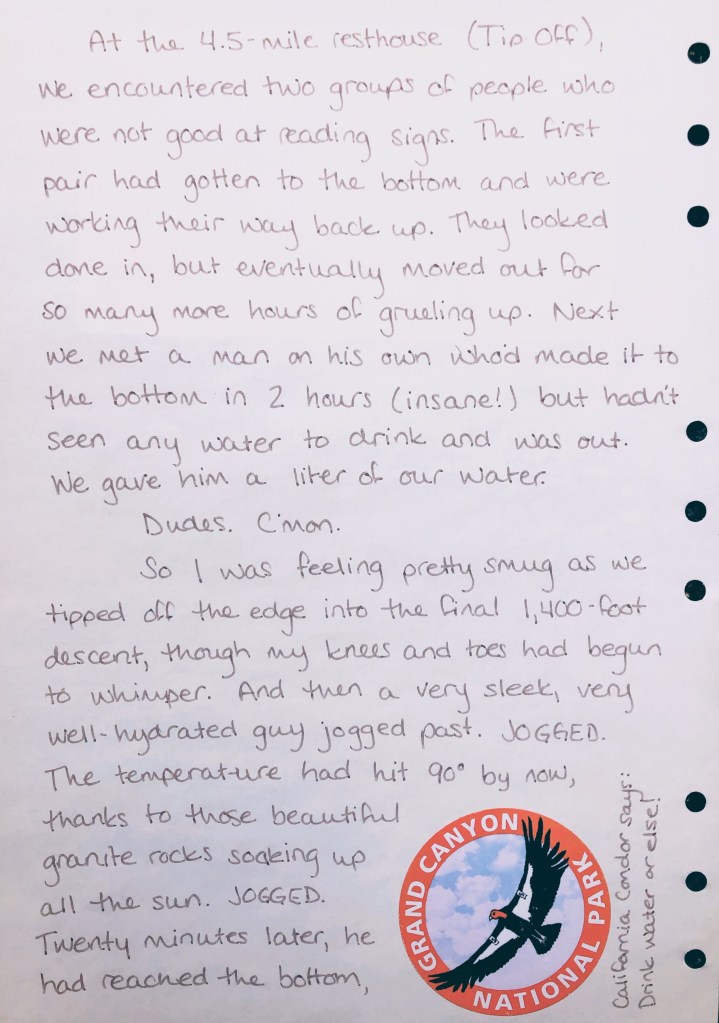 At the 4.5-mile resthouse (Tip Off),
we encountered two groups of people who
were not good at reading signs. The first
pair had gotten to the bottom and were
working their way back up. They looked
done in, but eventually moved out for
so many more hours of grueling up. Next
we met a man on his own who'd made it to
the bottom in 2 hours (insane!) but hadn't
seen any water to drink and was out.
We gave him a liter of our water.
Dudes. C'mon.
So I was feeling pretty smug as we
tipped off the edge into the final 1,400-foot
descent, though my knees and toes had begun
to whimper. And then a very sleek, very
well-hydrated guy jogged past. JOGGED.
The temperature had hit 90° by now,
thanks to those beautiful
granite rocks soaking up
all the sun. JOGGED.
Twenty minutes later, he
had reached the bottom,
GRAND CANYON
NATIONAL PARK
California Condor says:
Drink water or else!